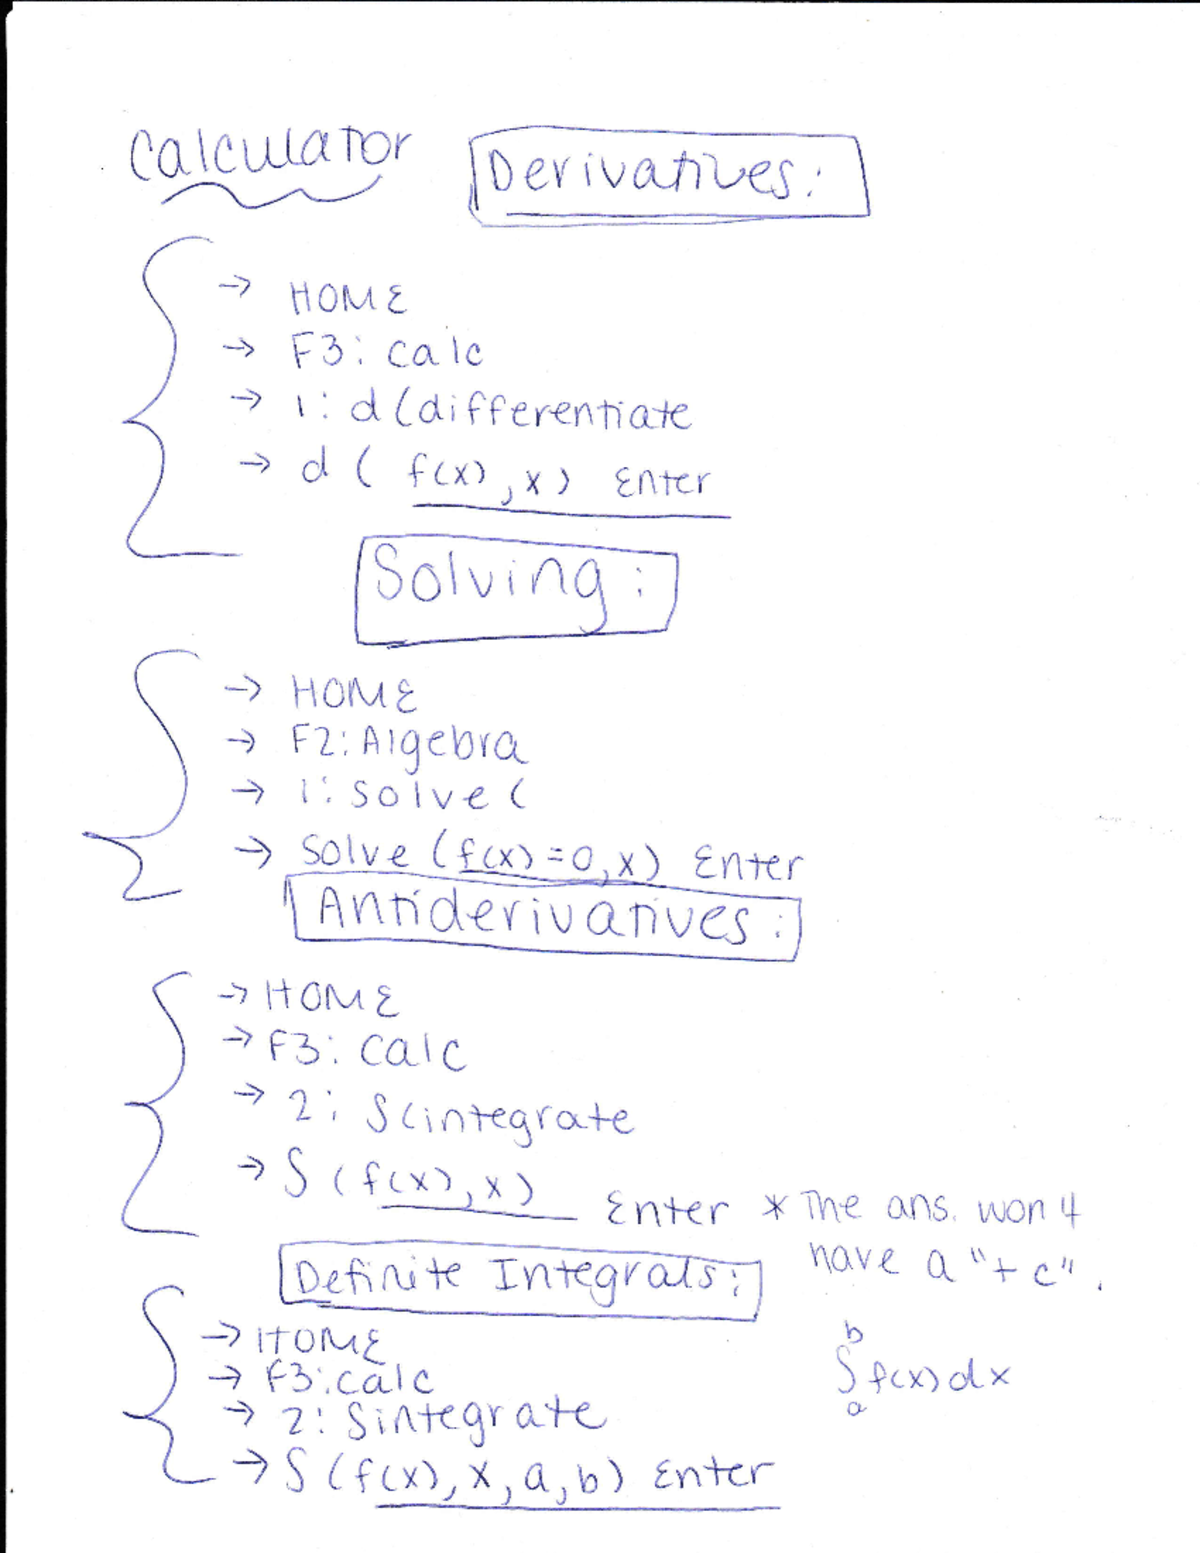 Calculator Derivatives:
→ HOME
→ F3: Calc
→ 1: d(differentiate
→ d( f(x), x) Enter
Solving:
→ HOME
→ F2: Algebra
→ 1: solve(
→ solve (f(x)=0,x) Enter
Antiderivatives:
→ HOME
→ F3: Calc
→ 2: ∫(integrate
→ ∫(f(x),x) Enter * The ans. won't
have a "+c".
Definite Integrals:
→ HOME
→ F3: calc
→ 2: ∫integrate
→ ∫(f(x), x, a, b) Enter
b
∫f(x)dx
a